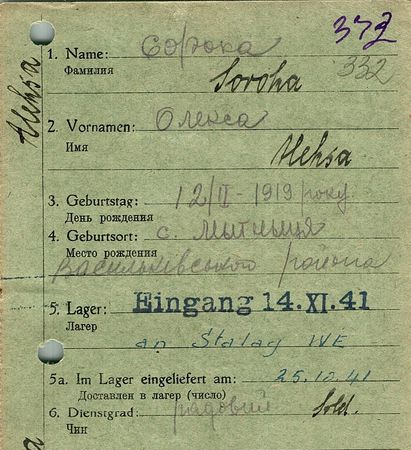 372
1. Name: Сорока
332
Фамилия
Soroka
Aleksa
2. Vornamen: Олекса
Имя
Aleksa
3. Geburtstag: 12/II-1919 року
День рождения
4. Geburtsort: с. Мытныця
Место рождения
Васильківського района
5. Lager: Eingang 14. XI. 41
Лагер
an Stalag IVE
5a. Im Lager eingeliefert am: 25.10.41
Доставлен в лагер (число)
6. Dienstgrad: рядовий Sold.
Чин